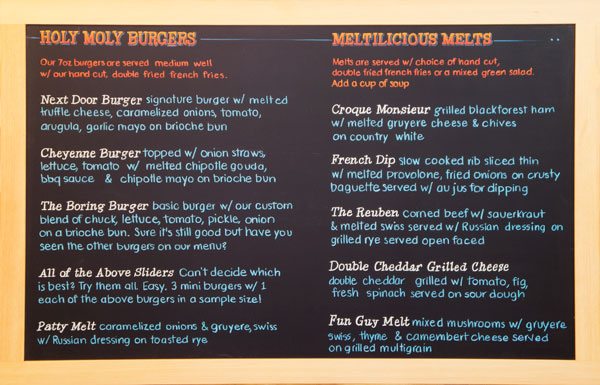 HOLY MOLY BURGERS
Our 7oz burgers are served medium well
w/ our hand cut, double fried french fries.
Next Door Burger signature burger w/ melted
truffle cheese, caramelized onions, tomato,
arugula, garlic mayo on brioche bun
Cheyenne Burger topped w/ onion straws,
lettuce, tomato w/ melted chipotle gouda,
bbq sauce & chipotle mayo on brioche bun
The Boring Burger basic burger w/ our custom
blend of chuck, lettuce, tomato, pickle, onion
on a brioche bun. Sure it's still good but have you
seen the other burgers on our menu?
All of the Above Sliders Can't decide which
is best? Try them all. Easy. 3 mini burgers w/ 1
each of the above burgers in a sample size!
Patty Melt caramelized onions & gruyere, swiss
w/ Russian dressing on toasted rye
MELTILICIOUS MELTS
Melts are served w/ choice of hand cut,
double fried french fries or a mixed green salad.
Add a cup of soup
Croque Monsieur grilled blackforest ham
w/ melted gruyere cheese & chives
on country white
French Dip slow cooked rib sliced thin
w/ melted provolone, fried onions on crusty
baguette served w/ au jus for dipping
The Reuben corned beef w/ sauerkraut
& melted swiss served w/ Russian dressing on
grilled rye served open faced
Double Cheddar Grilled Cheese
double cheddar grilled w/ tomato, fig,
fresh spinach served on sour dough
Fun Guy Melt mixed mushrooms w/ gruyere
swiss, thyme & camembert cheese served
on grilled multigrain